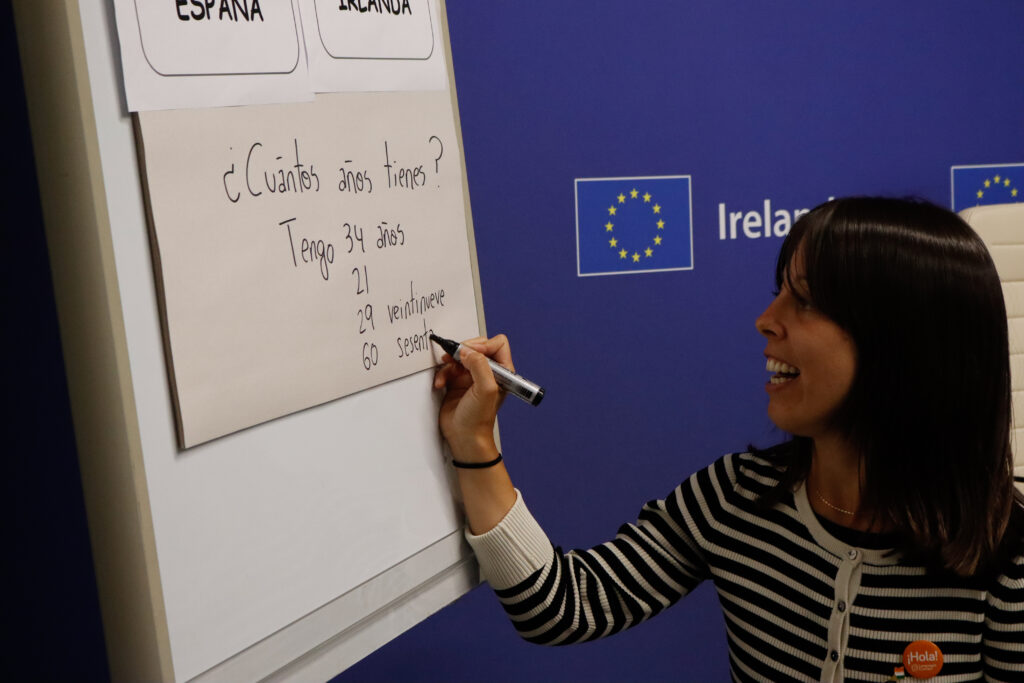 ESPAÑA
IRLANDA
¿Cuántos años tienes?
Tengo 34 años
21
29 veintinueve
60 sesenta
¡Hola!